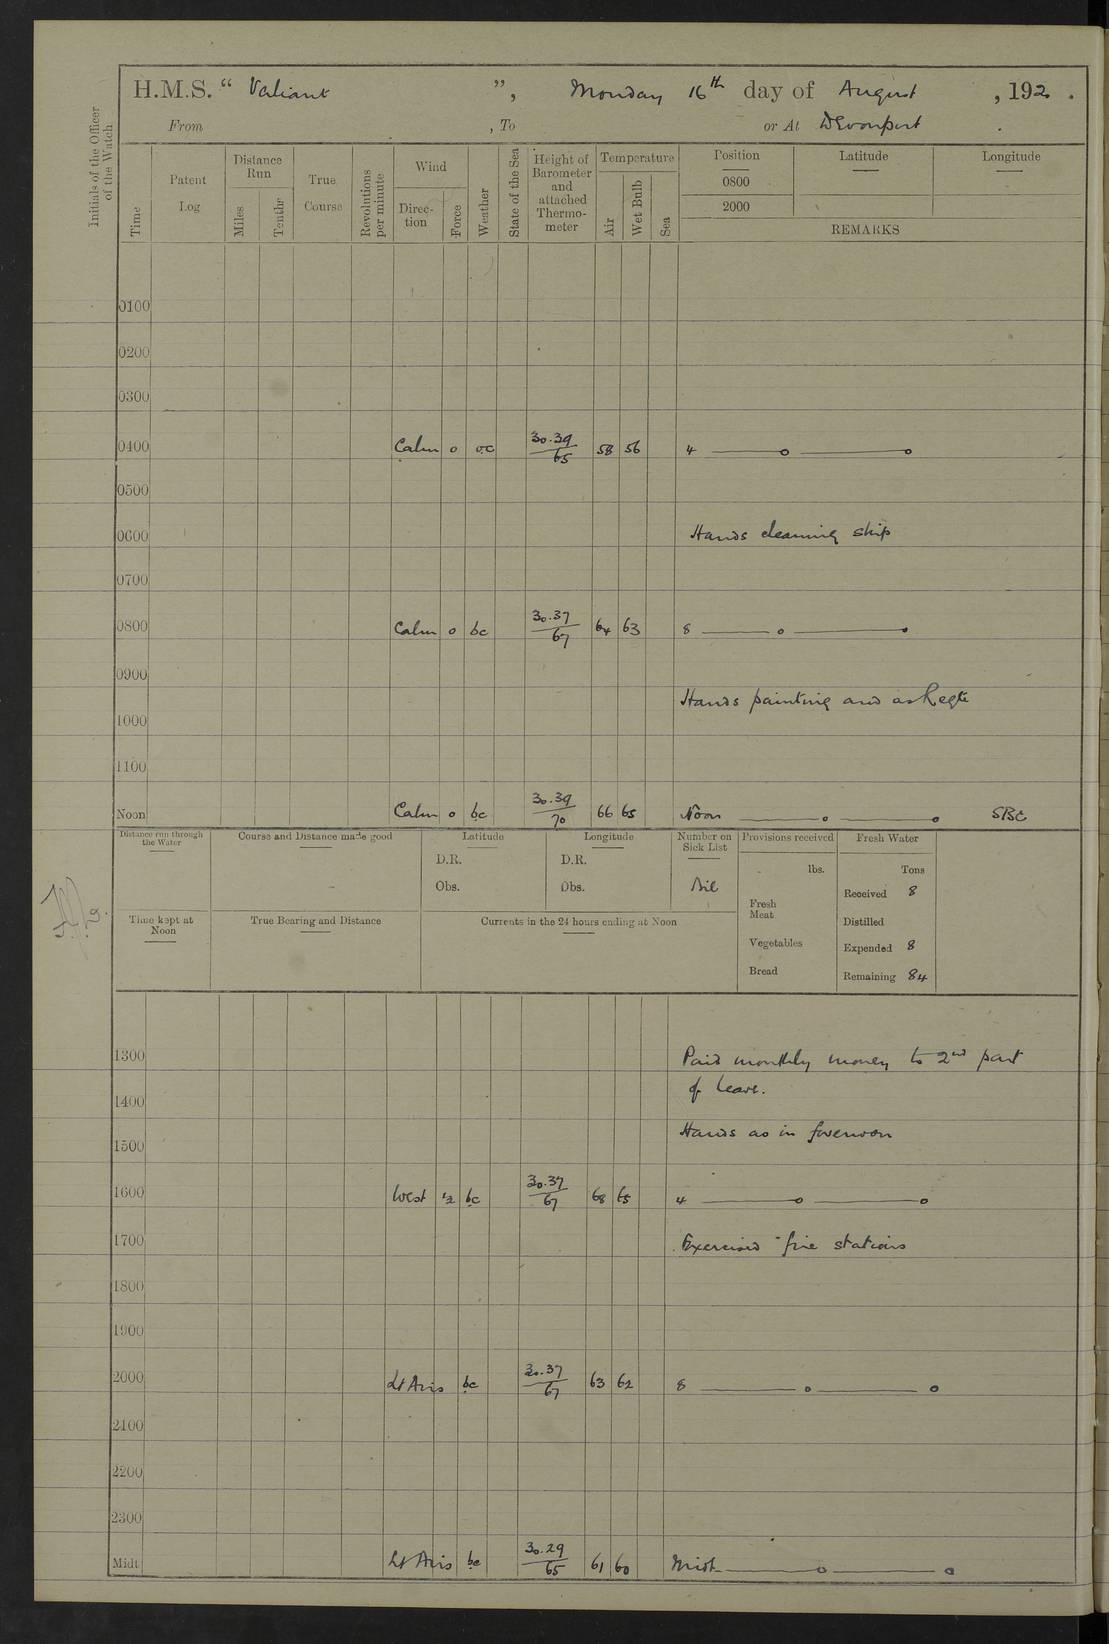 H.M.S. “ Valiant ”, Monday 16th day of August , 192 .
From , To or At Devonport .
Initials of the Officer of the Watch
Time
Patent Log
Distance Run
Miles
Tenths
True Course
Revolutions per minute
Wind
Direc-tion
Force
Weather
State of the Sea
Height of Barometer and attached Thermo-meter
Temperature
Air
Wet Bulb
Sea
Position Latitude Longitude
0800
2000
REMARKS
0100
0200
0300
0400 Calm 0 oc 30.39/65 58 56 4 ——o——o
0500
0600 Hands cleaning ship
0700
0800 Calm 0 bc 30.37/67 64 63 8 ——o——o
0900
Hands painting and as Reqte
1000
1100
Noon Calm 0 bc 30.39/70 66 65 Noon ——o——o
Distance run through the Water
Course and Distance made good
Latitude
D.R.
Obs.
Longitude
D.R.
Obs.
Number on Sick List
Nil
Provisions received
lbs.
Fresh Meat
Vegetables
Bread
Fresh Water
Tons
Received 8
Distilled
Expended 8
Remaining 84
Time kept at Noon
True Bearing and Distance
Currents in the 24 hours ending at Noon
1300 Paid monthly money to 2nd part
of leave.
1400
Hands as in forenoon
1500
1600 West ½ bc 30.37/67 68 65 4 ——o——o
1700 Exercised fire stations
1800
1900
2000 Lt Airs bc 30.37/67 63 62 8 ——o——o
2100
2200
2300
Midt Lt Airs bc 30.29/65 61 60 Midt ——o——o